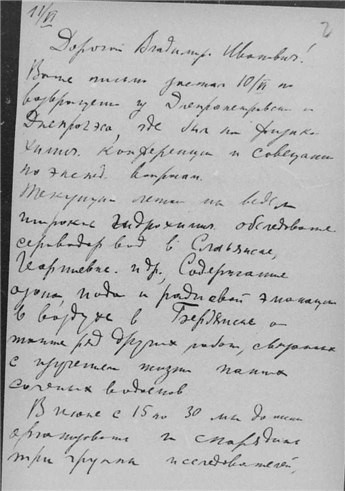 11/VI
2
Дорогой Владимир Иванович!
Ваше письмо застал 10/VI по
возвращении из Днепропетровска и
Днепрогэса, где был на физико
химич. конференции и совещании
по энерг. вопросам.
Текущим летом мы ведем
широкие гидрохимич. обследование
сероводор. вод в Славянске,
и др., Содержание
озона, иода и радиевой эманации
в воздухе в Бердянске и
целый ряд других работ, связанных
с изучением жизни наших
соленых водоемов
В июне с 15 по 30 мы должны
организовать и снарядить
три группы исследователей,